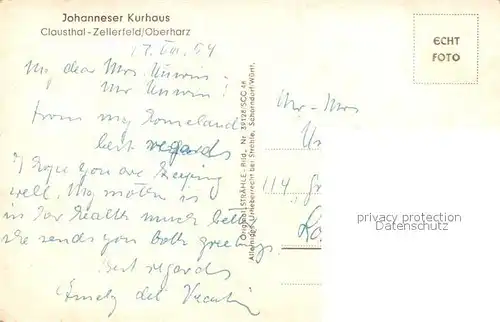 Johanneser Kurhaus
Clausthal-Zellerfeld/Oberharz
17. VIII. 54
My dear Mrs. Unwin
Mr Unwin!
From my Homeland
best regards
I hope you are keeping
well. My mother is
in her health much better
she sends you both greetings.
Best regards
ECHT
FOTO
Original STRÄHLE-Bild, Nr. 39128/SCO 46
Alleiniges Urheberrecht bei Strähle, Schorndorf/Württ.
Mr - Mrs
Un
114,
Lo
privacy protection
Datenschutz